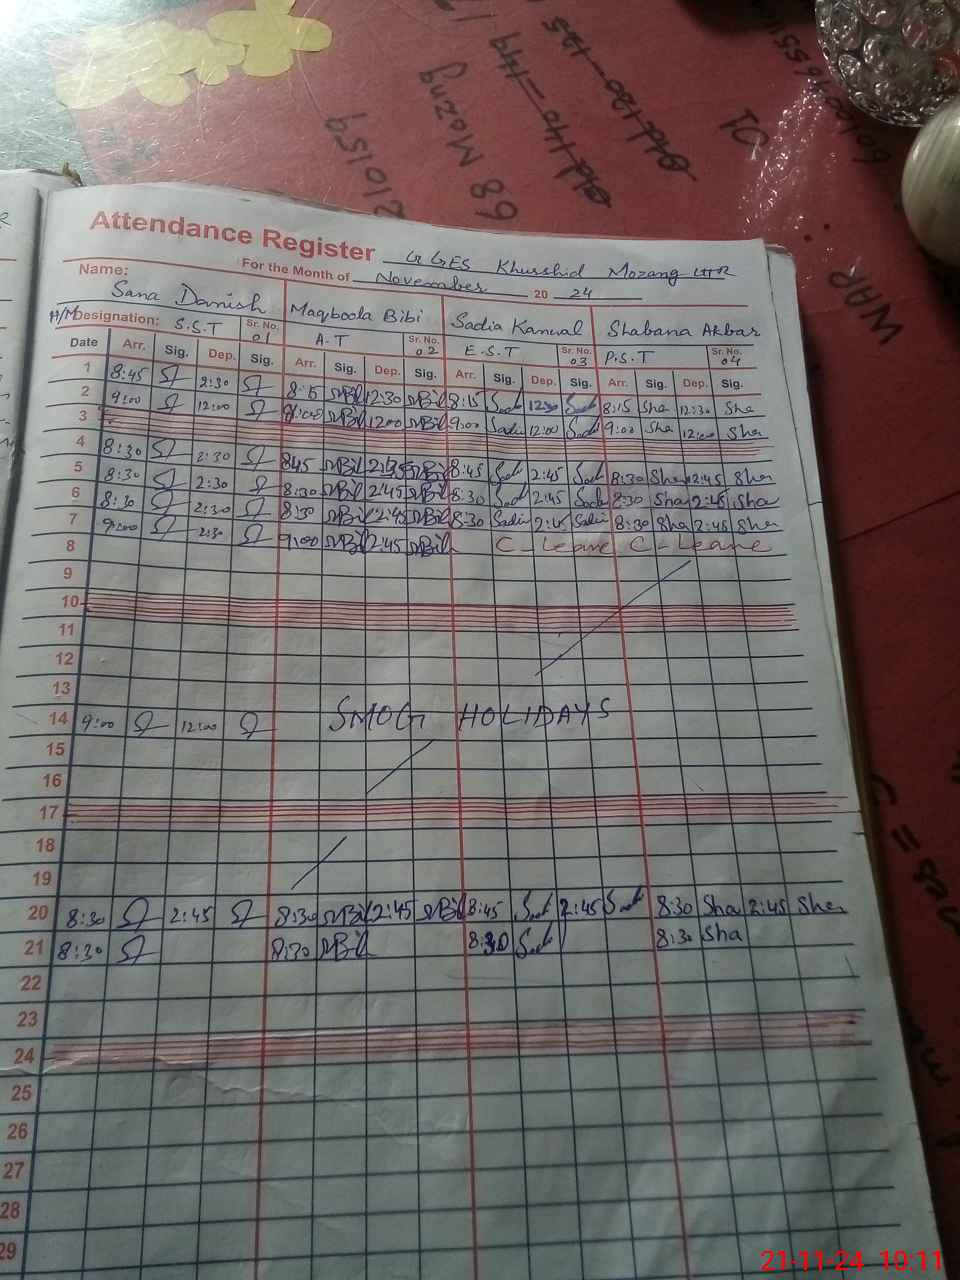 68 Mozang
Attendance Register GGES Khurshid Mozang LHR
For the Month of November 20 24
Name: Sana Danish Maqboola Bibi Sadia Kanwal Shabana Akbar
H/M Designation: S.S.T Sr. No. 01 A.T Sr. No. 02 E.S.T Sr. No. 03 P.S.T Sr. No. 04
Date Arr. Sig. Dep. Sig. Arr. Sig. Dep. Sig. Arr. Sig. Dep. Sig. Arr. Sig. Dep. Sig.
1 8:45 2:30 8:15 MBil 12:30 MBil 8:15 Sadi 12:30 Sadi 8:15 Sha 12:30 Sha
2 9:00 12:00 9:00 MBil 12:00 MBil 9:00 Sadi 12:00 Sadi 9:00 Sha 12:00 Sha
3
4 8:30 2:30 8:45 MBil 2:45 MBil 8:45 Sadi 2:45 Sadi 8:30 Sha 2:45 Sha
5 8:30 2:30 8:30 MBil 2:45 MBil 8:30 Sadi 2:45 Sadi 8:30 Sha 2:45 Sha
6 8:30 2:30 8:30 MBil 2:45 MBil 8:30 Sadi 2:45 Sadi 8:30 Sha 2:45 Sha
7 9:00 2:30 9:00 MBil 2:45 MBil C-Leave C-Leave
8
9
10
11
12
13
14 9:00 12:00 SMOG HOLIDAYS
15
16
17
18
19
20 8:30 2:45 8:30 MBil 2:45 MBil 8:45 Sadi 2:45 Sadi 8:30 Sha 2:45 Sha
21 8:30 8:30 MBil 8:30 Sadi 8:30 Sha
22
23
24
25
26
27
28
29
21-11-24 10:11